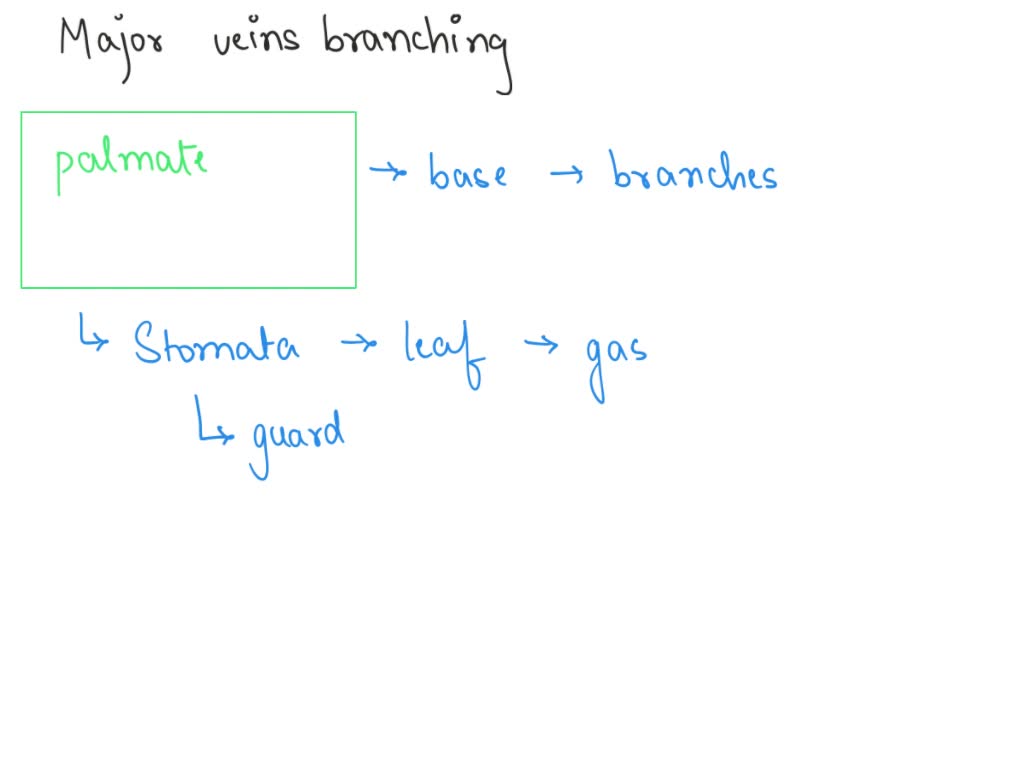 Major veins branching
palmate → base → branches
↳ Stomata → leaf → gas
↳ guard